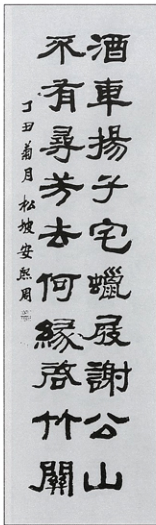 酒車揚子宅蠟屐謝公山
不有尋芳去何緣啓竹關
丁丑菊月 松坡 安熙周